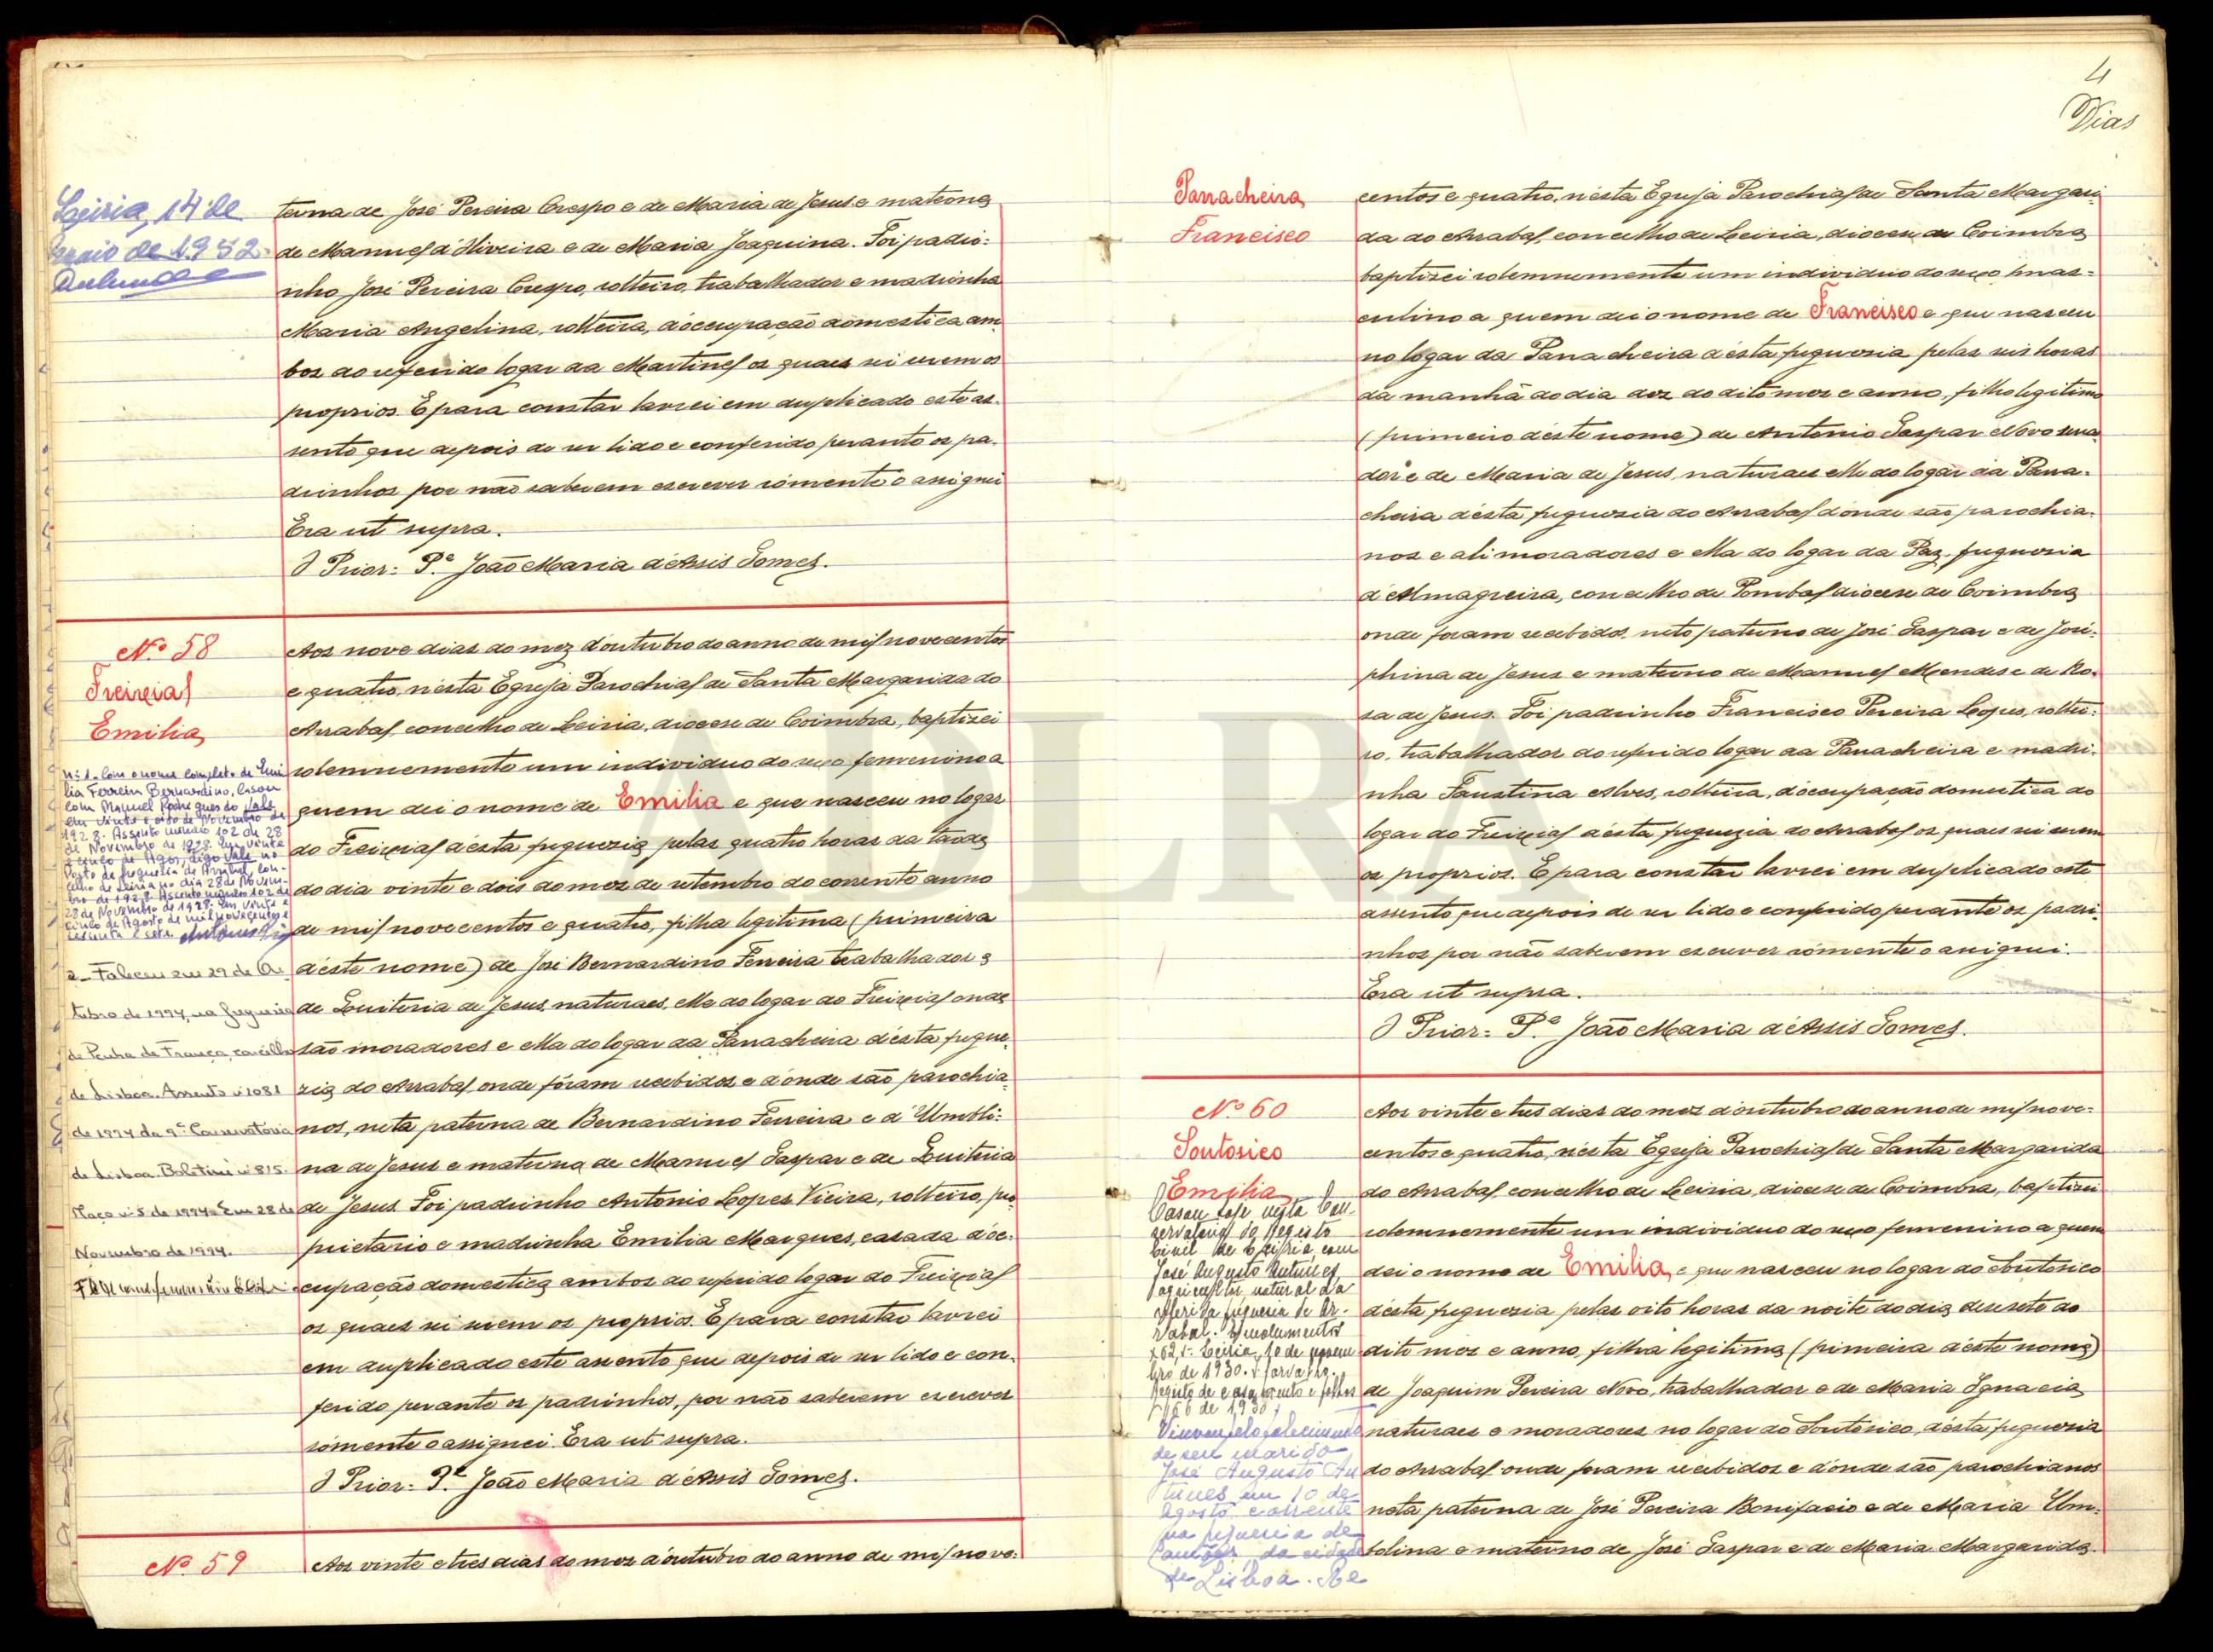 Leiria, 14 de
maio de 1952
terna de José Pereira Crespo e de Maria de Jesus e materna
de Manuel d'Oliveira e de Maria Joaquina. Foi padri-
nho José Pereira Crespo, solteiro, trabalhador e madrinha
Maria Angelina, solteira, d'occupação domestica, am
bos do referido logar da Martinel os quaes sei serem os
proprios. E para constar lavrei em duplicado este as-
sento que depois de ser lido e conferido perante os pa-
drinhos por não saberem escrever sómente o assignei
Era ut supra.
O Prior: P.e João Maria d'Assis Gomes.
Nº 58
Freixial
Emilia
Nº 1 - Com o nome completo de Emi
lia Ferreira Bernardino, casou
com Manuel Rodrigues do Vale
em vinte e oito de Novembro de
1928. Assento número 102 de 28
de Novembro de 1928. Em vinte
e cinco de Agos, digo Vale no
Posto de freguesia de Arrabal, con-
celho de Leiria no dia 28 de Novem-
bro de 1928. Assento número 102 de
28 de Novembro de 1928. Em vinte e
cinco de Agosto de mil novecentos e
2 - Faleceu em 29 de Ou
tubro de 1994, na freguesia
de Penha de França, concelho
de Lisboa. Assento nº 1081
de 1994 da 9ª Conservatória
de Lisboa. Boletim nº 815
Maço nº 5 de 1994. Em 28 de
Novembro de 1994.
Aos nove dias do mez d'outubro do anno de mil novecentos
e quatro, nésta Egreja Parochial de Santa Margarida do
Arrabal, concelho de Leiria, diocese de Coimbra, baptisei
solemnemente um individuo do sexo femenino a
quem dei o nome de Emilia e que nasceu no logar
do Freixial d'ésta freguezia pelas quatro horas da tarde
do dia vinte e dois do mez de setembro do corrente anno
de mil novecentos e quatro, filha legitima (primeira
d'éste nome) de José Bernardino Ferreira trabalhador e
de Quiteria de Jesus, naturaes, elle do logar do Freixial onde
são moradores e ella do logar da Panacheira d'ésta fregue-
zia do Arrabal onde fôram recebidos e d'onde são parochia-
nos, neta paterna de Bernardino Ferreira e d'Umbli-
na de Jesus e materna de Manuel Gaspar e de Quiteria
de Jesus. Foi padrinho Antonio Lopes Vieira, solteiro, pro-
prietario e madrinha Emilia Marques, casada d'oc-
cupação domestica ambos do referido logar do Freixial
os quaes sei serem os proprios. E para constar lavrei
em duplicado este assento que depois de ser lido e con-
ferido perante os padrinhos, por não saberem escrever
sómente o assignei. Era ut supra.
O Prior: P.e João Maria d'Assis Gomes.
Nº 59
Aos vinte e tres dias do mez d'outubro do anno de mil nove-
4
Dias
Panacheira
Francisco
centos e quatro, nésta Egreja Parochial de Santa Margari
da do Arrabal, concelho de Leiria, diocese de Coimbra
baptisei solemnemente um individuo do sexo mas-
culino a quem dei o nome de Francisco e que nasceu
no logar da Panacheira d'ésta freguezia pelas seis horas
da manhã do dia dez do dito mez e anno, filho legitimo
(primeiro d'éste nome) de Antonio Gaspar Novo serra
dor e de Maria de Jesus, naturaes elle do logar da Pana-
cheira d'ésta freguezia do Arrabal d'onde são parochia-
nos e ali moradores e ella do logar da Paz, freguezia
d'Almagreira, concelho de Pombal diocese de Coimbra
onde foram recebidos, neto paterno de José Gaspar e de José-
phina de Jesus e materno de Manuel Mendes e de Ro-
sa de Jesus. Foi padrinho Francisco Pereira Lopes, soltei-
ro, trabalhador do referido logar da Panacheira e madri-
nha Faustina Alves, solteira, d'occupação domestica do
logar do Freixial d'ésta freguezia do Arrabal os quaes sei serem
os proprios. E para constar lavrei em duplicado este
assento que depois de ser lido e conferido perante os padri-
nhos por não saberem escrever sómente o assignei.
Era ut supra.
O Prior: P.e João Maria d'Assis Gomes.
Nº 60
Soutosico
Emilia
Casou hoje nesta Con-
servatoria do Registo
Civil de Leiria, com
José Augusto Antunes,
agricultor, natural da
referida freguesia de Ar-
rabal. Emolumentos
Leiria, 10 de
bro de 1930.
Registo de casamento
de 1930.
Viuvou pelo falecimento
de seu marido
José Augusto An
tunes em 10 de
Agosto corrente
na freguesia de
Camões da cidade
de Lisboa.
Aos vinte e tres dias do mez d'outubro do anno de mil nove-
centos e quatro, nésta Egreja Parochial de Santa Margarida
do Arrabal, concelho de Leiria, diocese de Coimbra, baptisei
solemnemente um individuo do sexo femenino a quem
dei o nome de Emilia, e que nasceu no logar do Soutosico
d'ésta freguezia pelas oito horas da noite do dia desesete do
dito mez e anno, filha legitima (primeira d'éste nome)
de Joaquim Pereira Novo, trabalhador e de Maria Ignacia
naturaes e moradores no logar do Soutosico, d'ésta freguezia
do Arrabal onde foram recebidos e d'onde são parochianos
neta paterna de José Pereira Bonifacio e de Maria Um-
bolina e materno de José Gaspar e de Maria Margarida
ADLRA